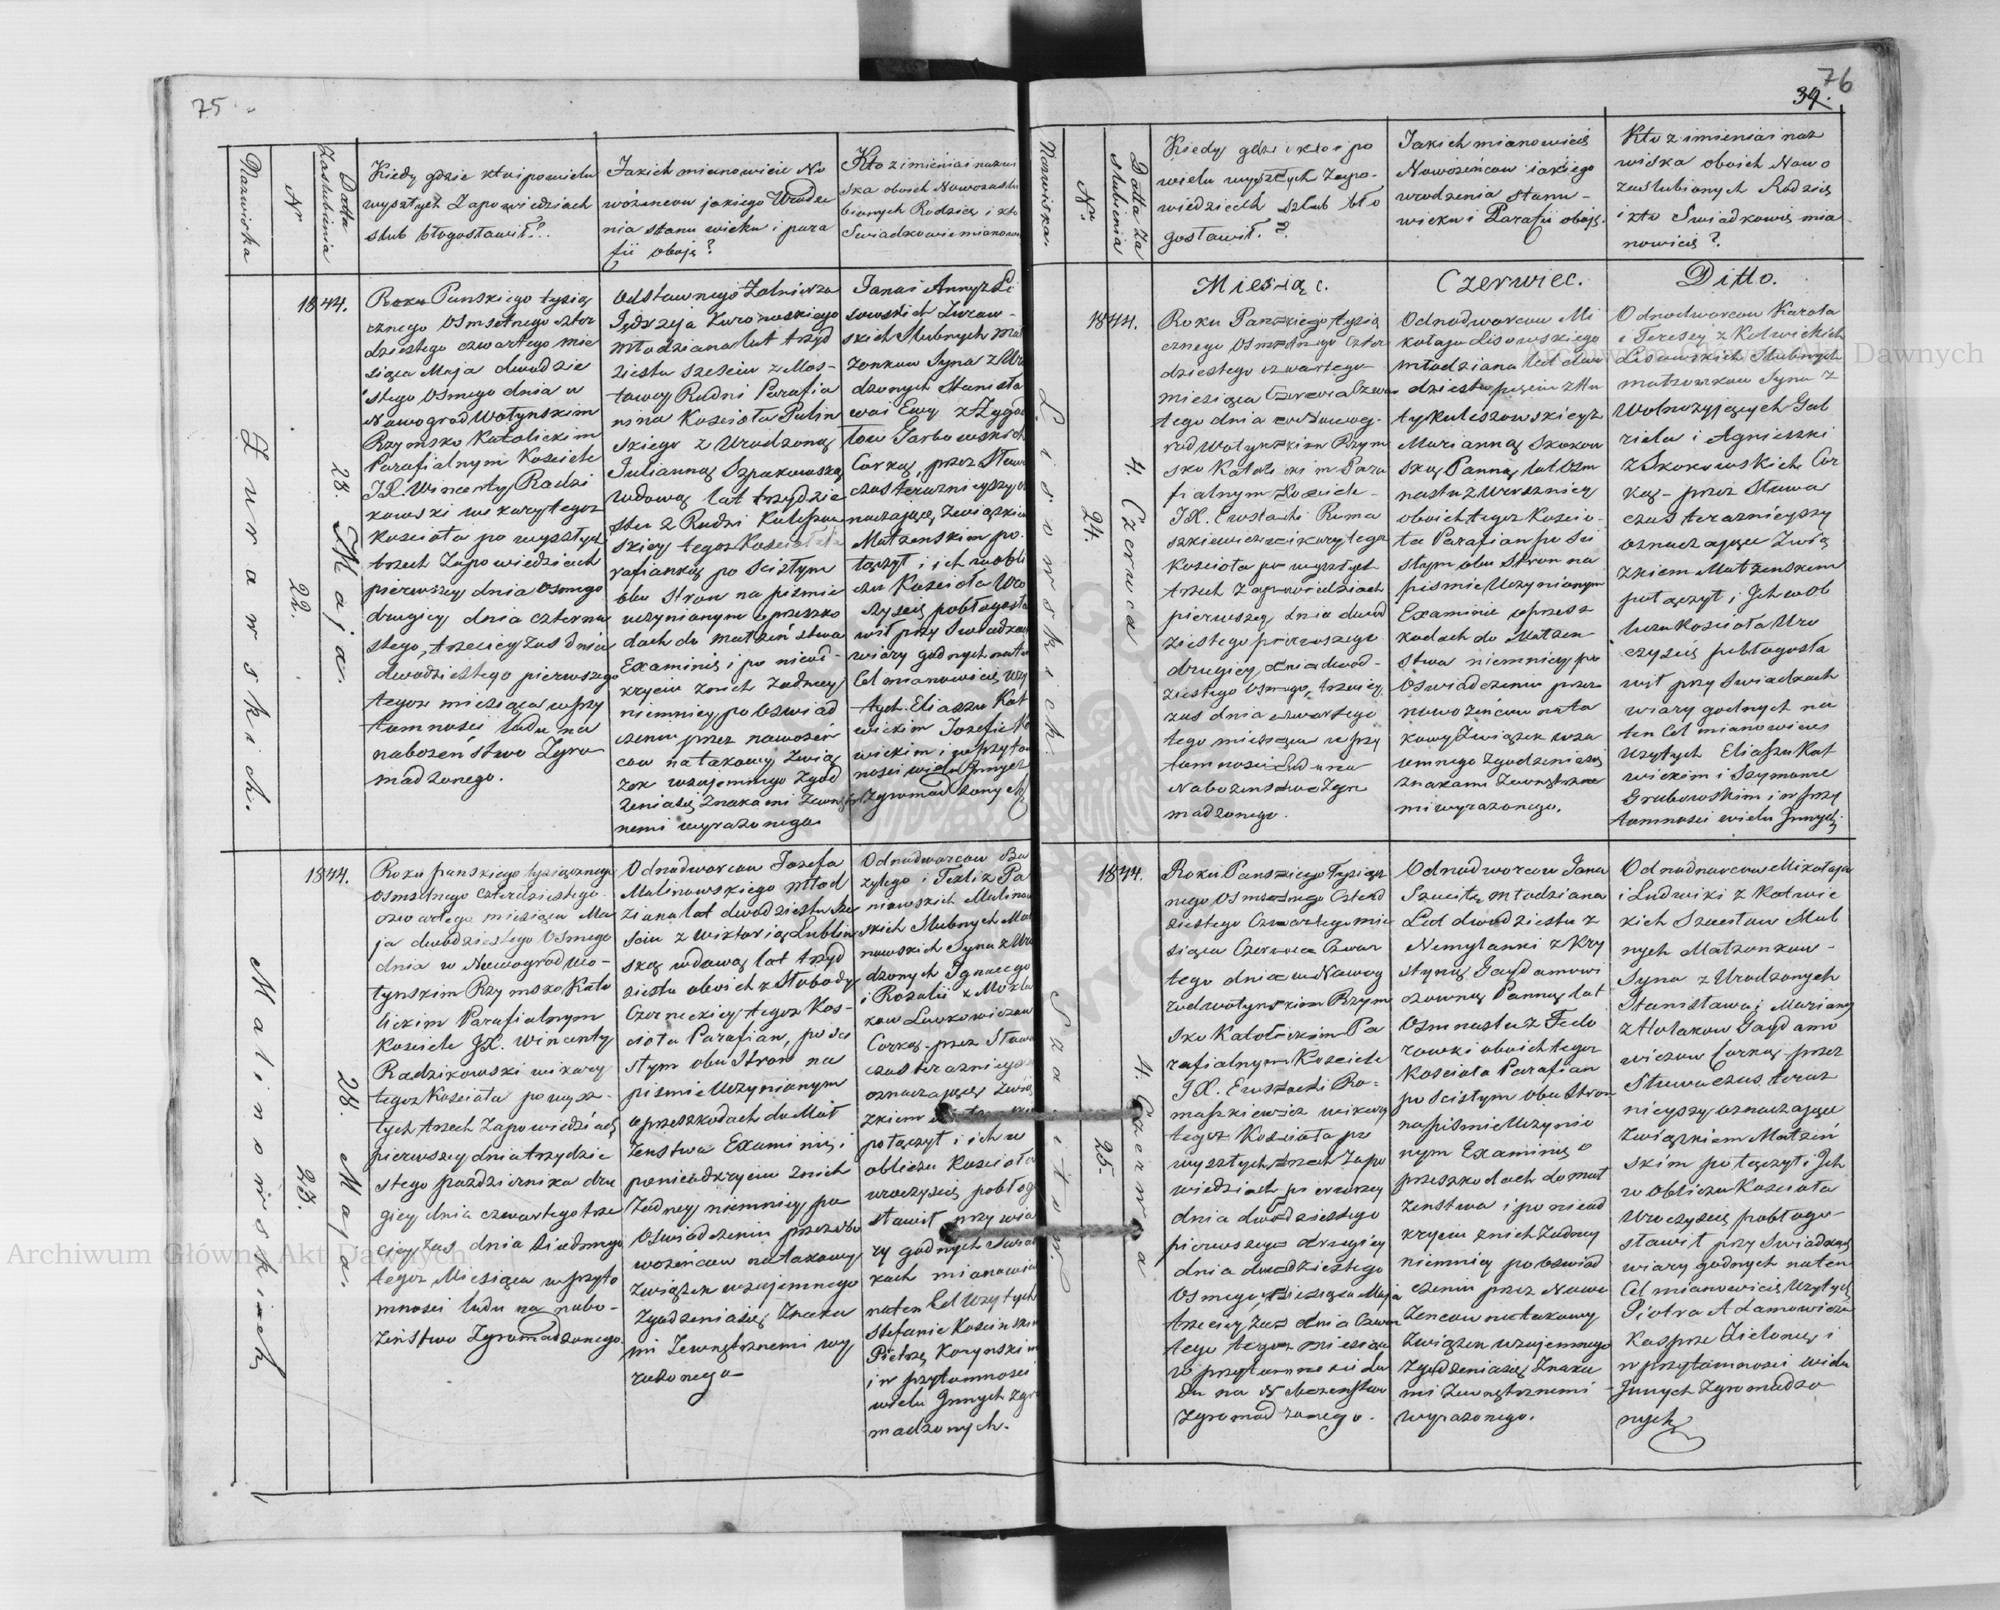 75
Nazwiska
Nr
Datta
Zaslubienia
Kiedy gdzie kto i po wielu
wyszłych Zapowiedziach
slub błogosławił?
Jakich mianowicie No
wożencow jakiego Urodze
nia stanu wieku i para
fii oboje?
Kto z imienia i nazwi
ska oboich Nowozaslu
bionych Rodzice i kto
Swiadkowie mianow
1844.
Zurawskich.
22.
28. Maja.
Roku Panskiego tysią
cznego Osmsetnego czter
dziestego czwartego mie
siąca Maja dwudzie
stego Osmego dnia w
Nowogrod Wołynskim
Rzymsko Katolickim
Parafialnym Kosciele
JX. Wincenty Radzi
kowski wikary tegoz
Kosciola po wyszłych
trzech Zapowiedziach
pierwszey dnia Osmego
drugiey dnia czterna
stego, trzeciey zas dnia
dwudziestego pierwszego
tegoz miesiąca w przy
tomnosci ludu na
nabożeństwo Zgro
madzonego.
Odstawnego Zołnierza
Jędrzeja Zurowskiego
Młodziana lat trzyd
ziestu szesciu z Mos-
towey Rudni Parafia
nina Kosciola Pulin
skiego z Urodzoną
Juliannę Szpakowską
wdową lat trzydzie
stu z Rudni Kuliszow
skiey tegoz Kosciola Pa
rafianką po scisłym
obu stron na pismie
uczynionym o przeszko
dach do małzeństwa
Examinie i po nieod-
kryciu znich żadney
niemniey po Oswiad
czeniu przez nowożeń
cow na takowy Zwią
zek wzajemnego Zgod
zenia się Znakami Zewnętrz
nemi wyrażonego
Jana i Anny z Li
sowskich Zuraw-
skich slubnych mał
żonkow Syna z Uro
dzonych Stanisła
wa i Ewy z Zygad
łow Garbowskich
Corką, przez słowa
czas terazniejszy o
znaczające, Związkiem
Małzenskim po
łączył i ich w obli
czu Kosciola Uro
czyscie pobłogosła
wił przy Swiadkach
wiary godnych na ten
Cel mianowicie uży
tych Eliaszu Kot
wickim Jozefie Ko
wickim i w przytom
nosci wielu Innych
Zgromadzonych
1844.
Malinowskich
23.
28. Maja.
Roku panskiego tysiącznego
Osmsetnego czterdziestego
czwartego miesiąca Ma
ja dwudziestego Osmego
dnia w Nowogrod Wo-
łynskim Rzymsko Kato
lickim Parafialnym
Kosciele JX. Wincenty
Radzikowski wikary
tegoz Kosciola po wysz-
łych trzech Zapowiedziach
pierwszey dnia trzydzie
stego pazdziernika dru
giey dnia czwartego trze
ciey zas dnia siodmego
tegoz Miesiąca w przyto
mnosci ludu na nabo-
żeństwo Zgromadzonego
Odnodworcow Jozefa
Malinowskiego młod
ziana lat dwudziestu sze
sciu z Wiktorią Lublin
ską wdową lat trzyd
ziestu oboich z Słobody
Czerneckiey tegoz Kos-
ciola Parafian, po sci
słym obu stron na
pismie Uczynionym
o przeszkodach do Mał
żeństwa Examinie, i
po nieodkryciu znich
żadney niemniey po
Oswiadczeniu przez No
wożeńcow na takowy
związek wzajemnego
Zgodzenia się Znaka
mi Zewnętrznemi wy
rażonego
Odnodworcow Ba
zylego i Tekli z Pa
niowskich Malinow
skich slubnych Mał
Syna z Uro
dzonych Ignacego
i Rozalii z Mozla
kow Lewkowiczow
Corką, przez słowa
czas terazniejszy
oznaczające Zwią
zkiem
połączył i ich w
obliczu Kosciola
uroczyscie pobłogo
sławił przy wia
ry godnych Swiad
kach mianowicie
na ten Cel użytych
Stefanie Koscinskim
Piotrze Korynskim
i w przytomnosci
wielu Innych Zgro
madzonych.
76
39.
Nazwiska.
Nr.
Datta Za
slubienia
Kiedy gdzie i kto i po
wielu wyszłych Zapo-
wiedziech szlub bło
gosławił.?
Jakich mianowicie
Nowożeńcow i jakiego
urodzenia stanu-
wieku i Parafii oboje.
Kto z imienia i naz
wiska oboich Nowo
zaslubionych Rodzice
i kto Swiadkowie mia
nowicie?
Miesiąc.
Czerwiec.
Ditto.
1844.
Lisowskich.
24.
4. Czerwca
Roku Panskiego tysią
cznego Osmsetnego Czter
dziestego czwartego
miesiąca Czerwca Czwar
tego dnia w Nowog-
rod Wołynskim Rzym
sko Katolickim Para
fialnym Kosciele-
JX. Eustachi Roma
szkiewicz wikary tegoz
Kosciola po wyszłych
trzech Zapowiedziach
pierwszey dnia dwud
ziestego pierwszego
drugiey dnia dwud-
ziestego Osmego, trzeciey
zas dnia czwartego
tego miesiąca w przy
tomnosci Ludu na
Nabożenstwo Zgro
madzonego.
Odnodworcow Mi
kołaja Lisowskiego
młodziana lat dwu
dziestu pięciu z Hu
ty Kuliszowskiey z
Marianną Skokow
ską Panną lat Osm
nastu z Uroznicy
oboich tegoz Koscio-
ła Parafian po sci
słym obu stron na
pismie Uczynionym
Examinie o przesz
kodach do Małzen
stwa niemniey po
Oswiadczeniu przez
nowożeńcow na ta
kowy Związek wza
jemnego Zgodzenia się
znakami Zewnętrzne
mi wyrażonego.
Odnodworcow Karola
i Teresy z Kotwickich
Lisowskich slubnych
małżonkow Syna z
Wolnożyjących Gab
riela i Agnieszki
z Skokowskich Cor
ką- przez słowa
czas terazniejszy
oznaczające Zwią
zkiem Małzenskim
połączył i Ich w ob
liczu Kosciola Uro
czyscie pobłogosła
wił przy Swiadkach
wiary godnych na
ten Cel mianowicie
Użytych Eliaszu Kot
wickim i Szymonie
Grabowskim i w przy
tomnosci wielu Innych.
1844.
Szuitow.
25.
4. Czerwca
Roku Panskiego Tysiącz
nego Osmsetnego Czterd
ziestego Czwartego mie
siąca Czerwca Czwar
tego dnia w Nowog
rodwołynskim Rzym
sko Katolickim Pa
rafialnym Kosciele
JX. Eustachi Ro-
maszkiewicz wikary
tegoz Kosciola po
wyszłych trzech Zapo
wiedziach pierwszey
dnia dwudziestego
pierwszego drugiey
dnia dwudziestego
Osmego, Miesiąca Maja
trzeciey Zas dnia Czwar
tego tegoz miesiąca
w przytomnosci lu
du na Nabożenstwo
Zgromadzonego.
Odnodworcow Jana
Szuitę młodziana
Lat dwudziestu z
Nemylanki z Kry
styną Gaydamowi
czowną Panną lat
Osmnastu z Fedo
rowki oboich tegoz
Kosciola Parafian
po scisłym obu Stron
na pismie Uczynio
nym Examinie o
przeszkodach do mał
żenstwa i po nieod
kryciu znich Żadney
niemniey po Oswiad
czeniu przez Nowo
Żencow na takowy
Związek wzajemnego
Zgodzenia się Znaka
mi Zewnętrznemi-
wyrażonego.
Odnodworcow Mikołaja
i Ludwiki z Kotwic
kich Szuitow slub
nych Małżonkow-
Syna z Urodzonych
Stanisława i Marianny
z Holakow Gaydamo
wiczow Corką- przez
słowa czas teraz
nieyszy oznaczające
Związkiem Małzeń
skim połączył i Ich
w Obliczu Kosciola
Uroczyscie pobłogo-
sławił przy Swiadkach
wiary godnych na ten
Cel mianowicie Użytych
Piotra Adamowicza
Kasprze Zielonce i
w przytomnosci wielu
Innych Zgromadzo
nych
Archiwum Główne Akt Dawnych
Archiwum Główne Akt Dawnych